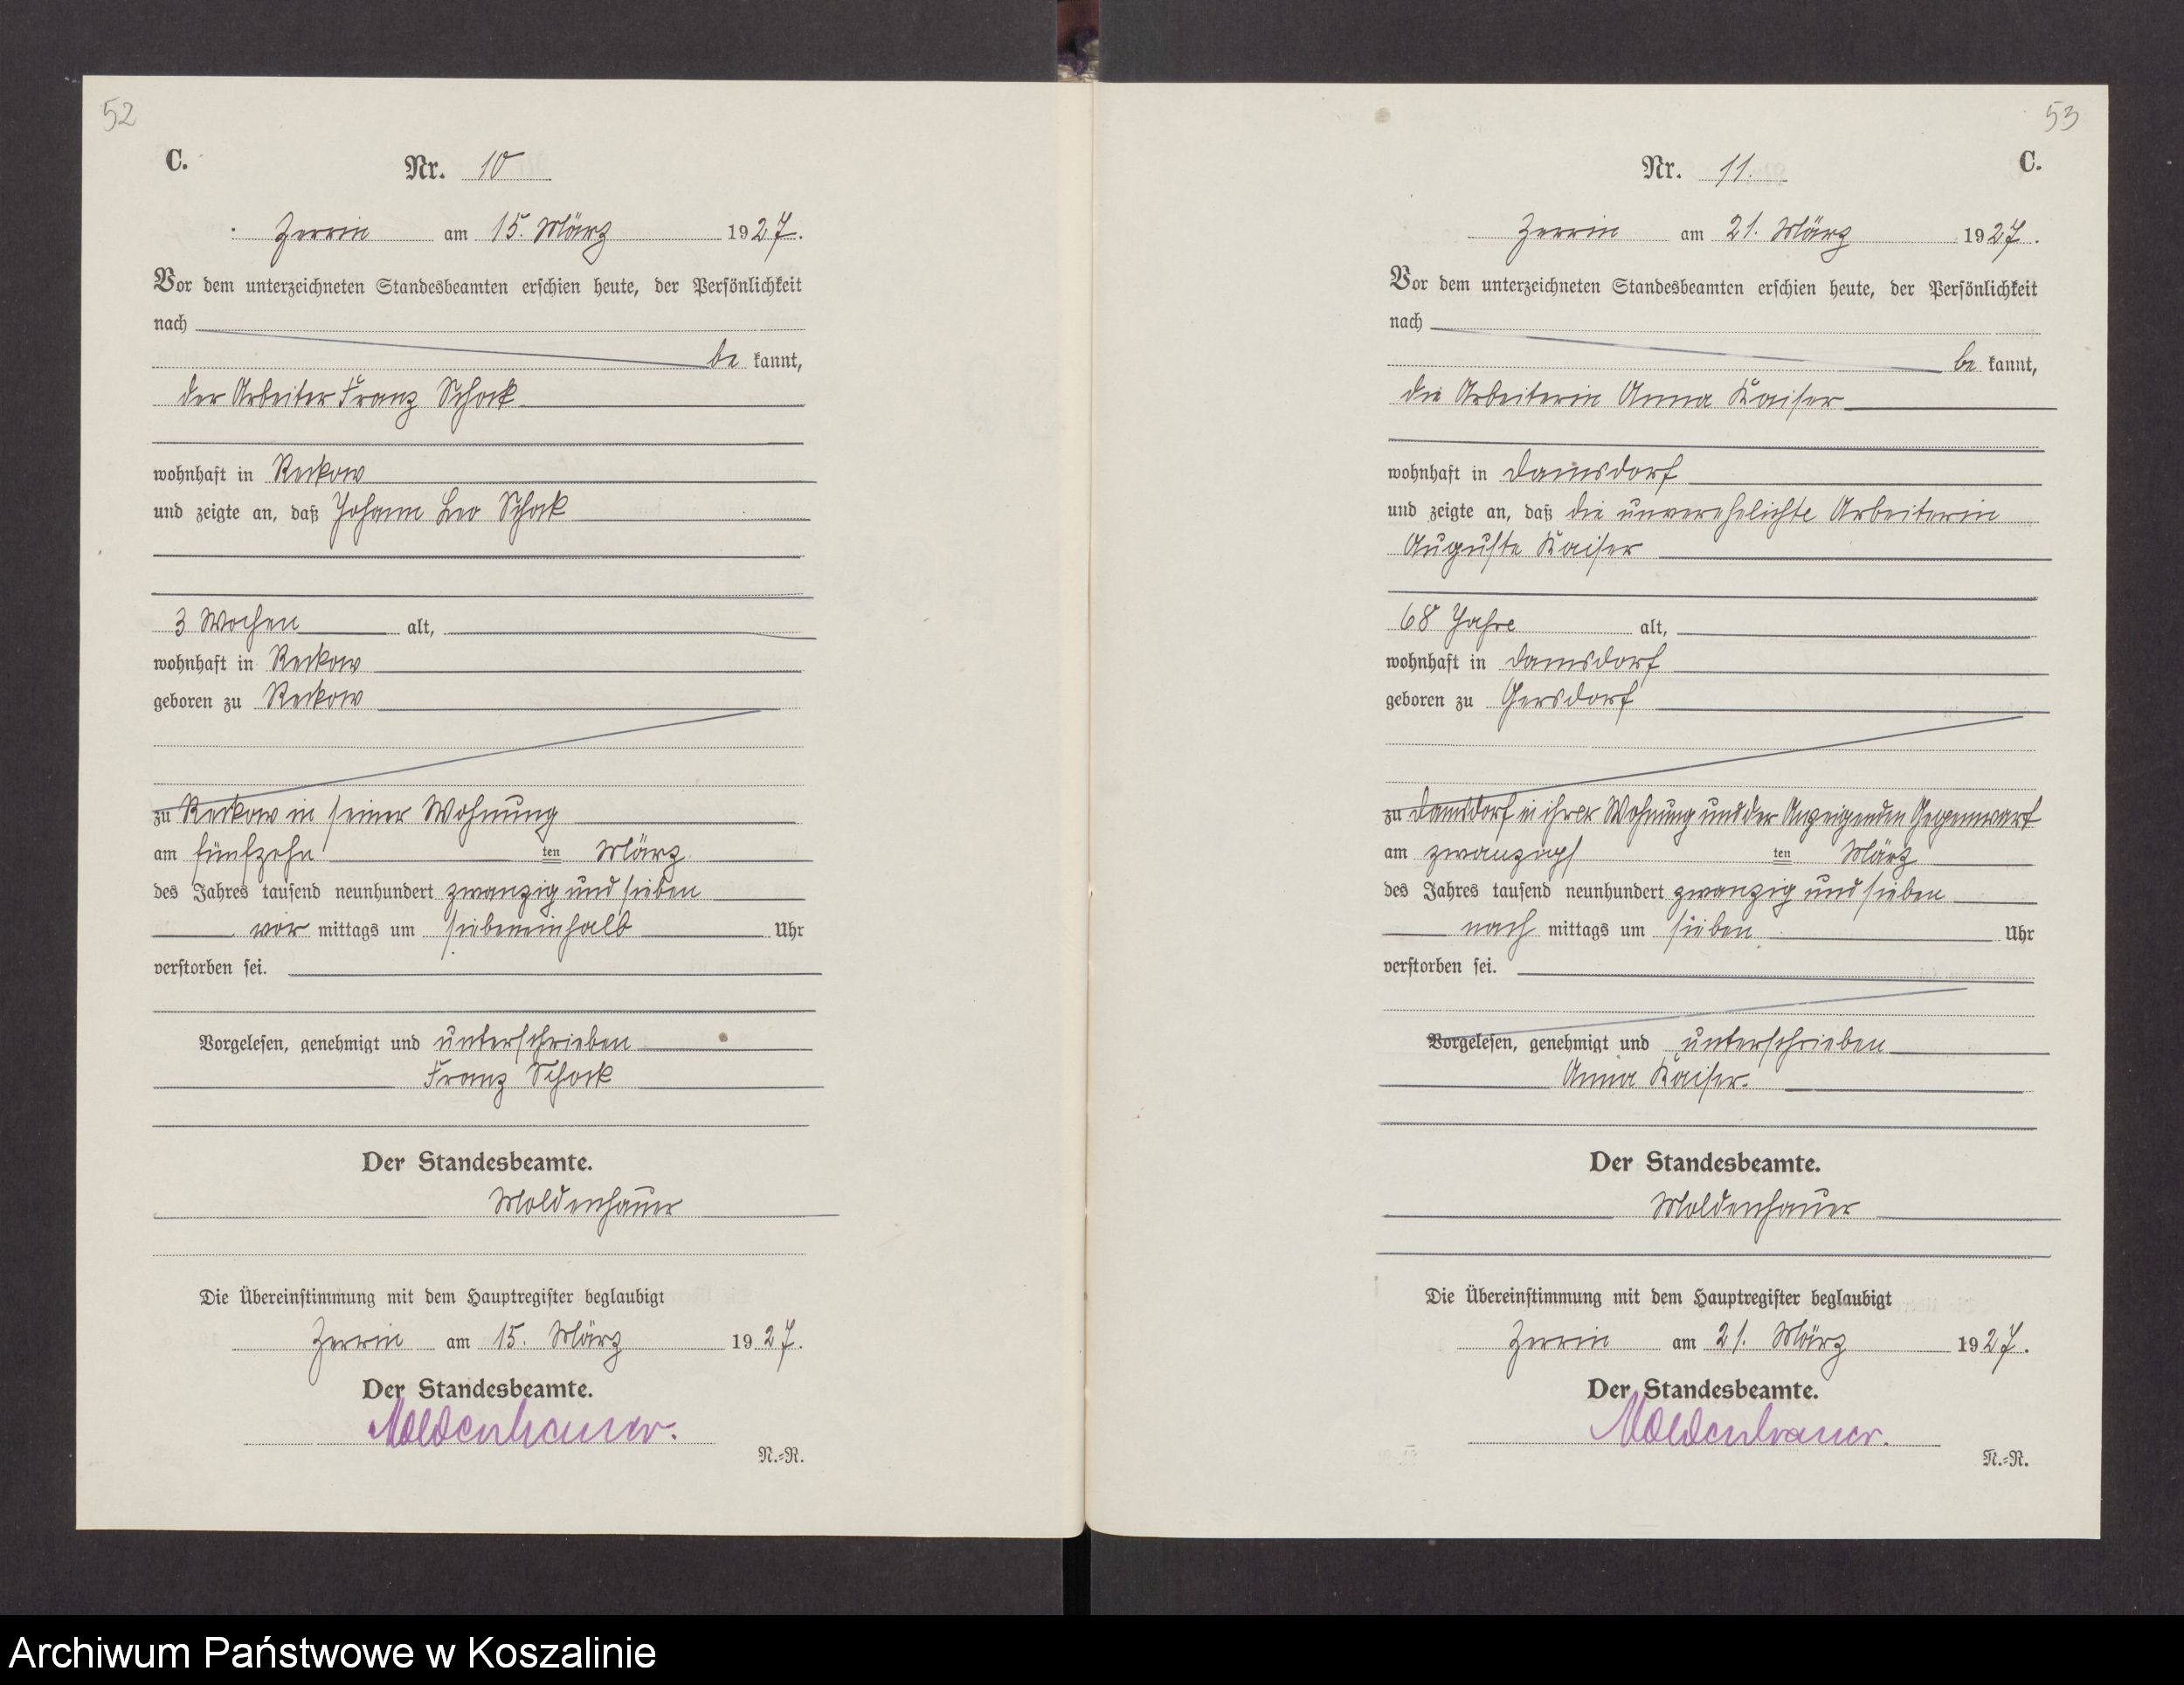 52
C.
Nr. 10
Zerrin am 15. März 1927.
Vor dem unterzeichneten Standesbeamten erschien heute, der Persönlichkeit
nach
be kannt,
der Arbeiter Franz Schock
wohnhaft in Reckow
und zeigte an, daß Johann Leo Schock
3 Wochen alt,
wohnhaft in Reckow
geboren zu Reckow
zu Reckow in seiner Wohnung
am fünfzehn ten März
des Jahres tausend neunhundert zwanzig und sieben
vor mittags um siebeneinhalb Uhr
verstorben sei.
Vorgelesen, genehmigt und unterschrieben
Franz Schock
Der Standesbeamte.
Moldenhauer
Die Übereinstimmung mit dem Hauptregister beglaubigt
Zerrin am 15. März 1927.
Der Standesbeamte.
Moldenhauer.
N.=R.
53
C.
Nr. 11.
Zerrin am 21. März 1927.
Vor dem unterzeichneten Standesbeamten erschien heute, der Persönlichkeit
nach
be kannt,
die Arbeiterin Anna Kaiser
wohnhaft in Damsdorf
und zeigte an, daß die unverehelichte Arbeiterin
Auguste Kaiser
68 Jahre alt,
wohnhaft in Damsdorf
geboren zu Gersdorf
zu Damsdorf in ihrer Wohnung und der Anzeigenden Gegenwart
am zwanzigs ten März
des Jahres tausend neunhundert zwanzig und sieben
nach mittags um sieben Uhr
verstorben sei.
Vorgelesen, genehmigt und unterschrieben
Anna Kaiser.
Der Standesbeamte.
Moldenhauer
Die Übereinstimmung mit dem Hauptregister beglaubigt
Zerrin am 21. März 1927.
Der Standesbeamte.
Moldenhauer.
N.=R.
Archiwum Państwowe w Koszalinie